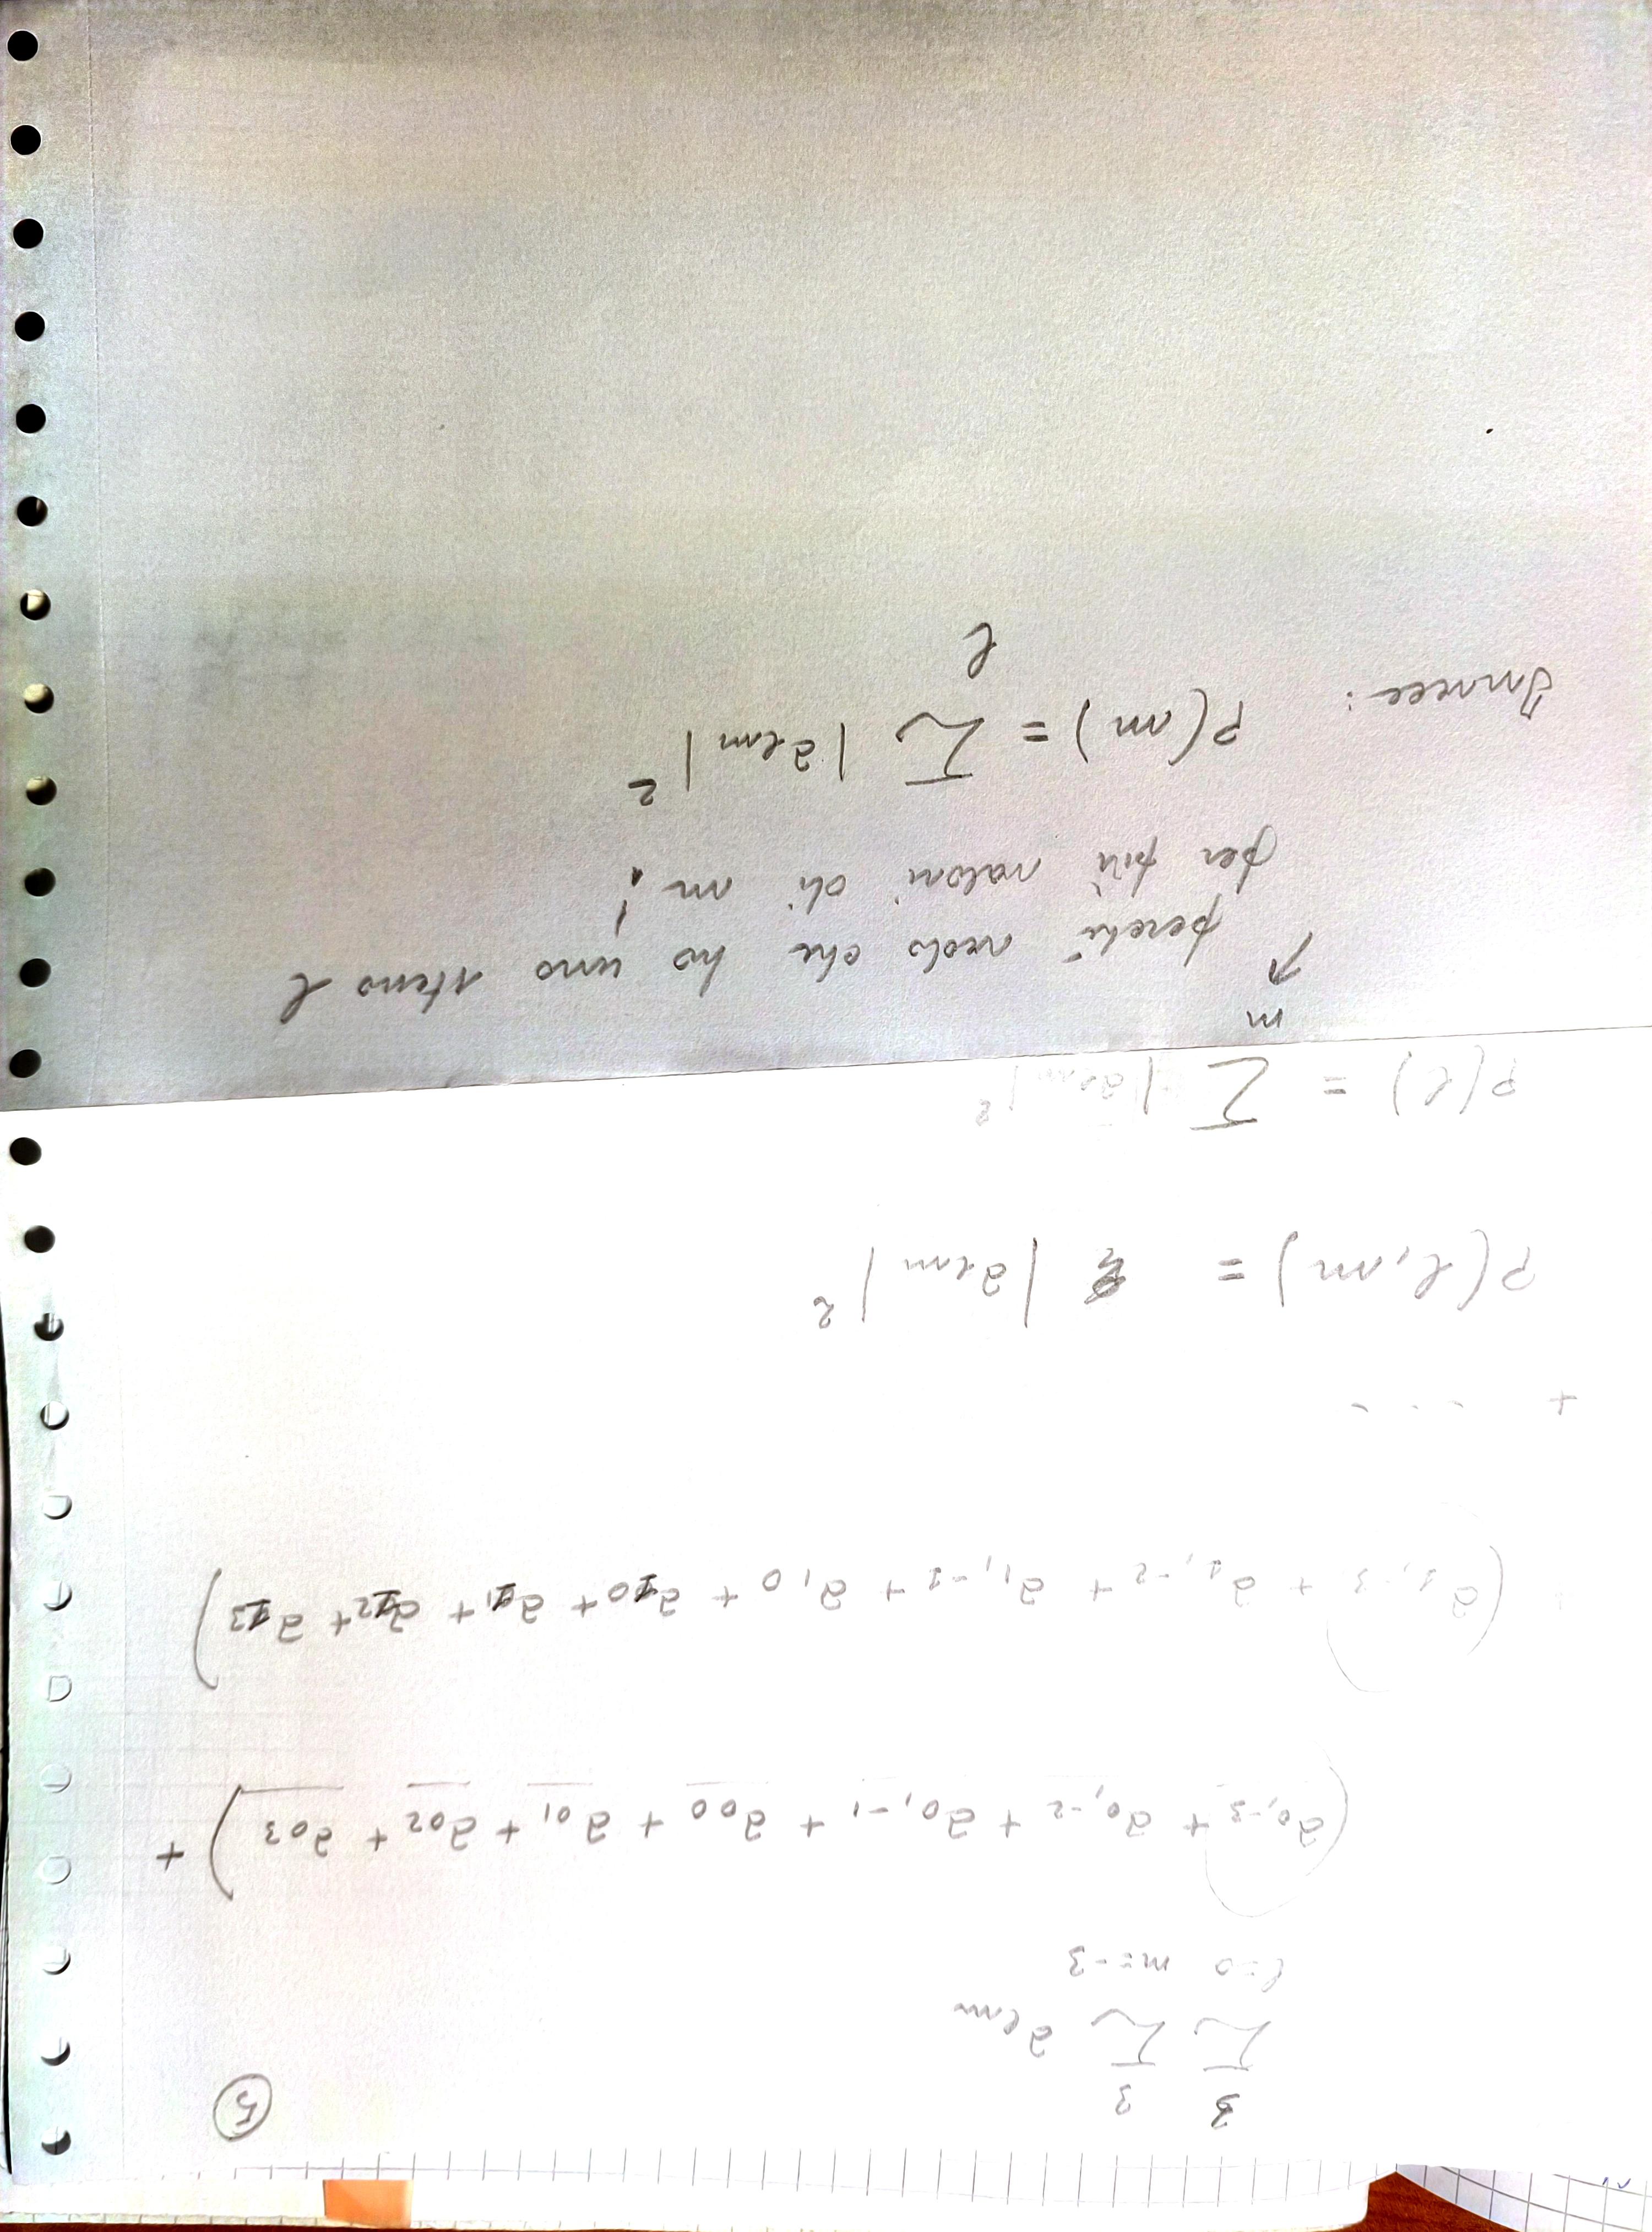 5
3 3
Σ Σ alm
l=0 m=-3
(a0,-3 + a0,-2 + a0,-1 + a00 + a01 + a02 + a03) +
+ (a1,-3 + a1,-2 + a1,-1 + a1,0 + a10 + a11 + a12 + a13)
+ ....
P(l,m) = |alm|²
P(l) = Σ |alm|²
m
↑ perché vedo che ho uno stesso l
per più valori di m!
Invece: P(m) = Σ |alm|²
l